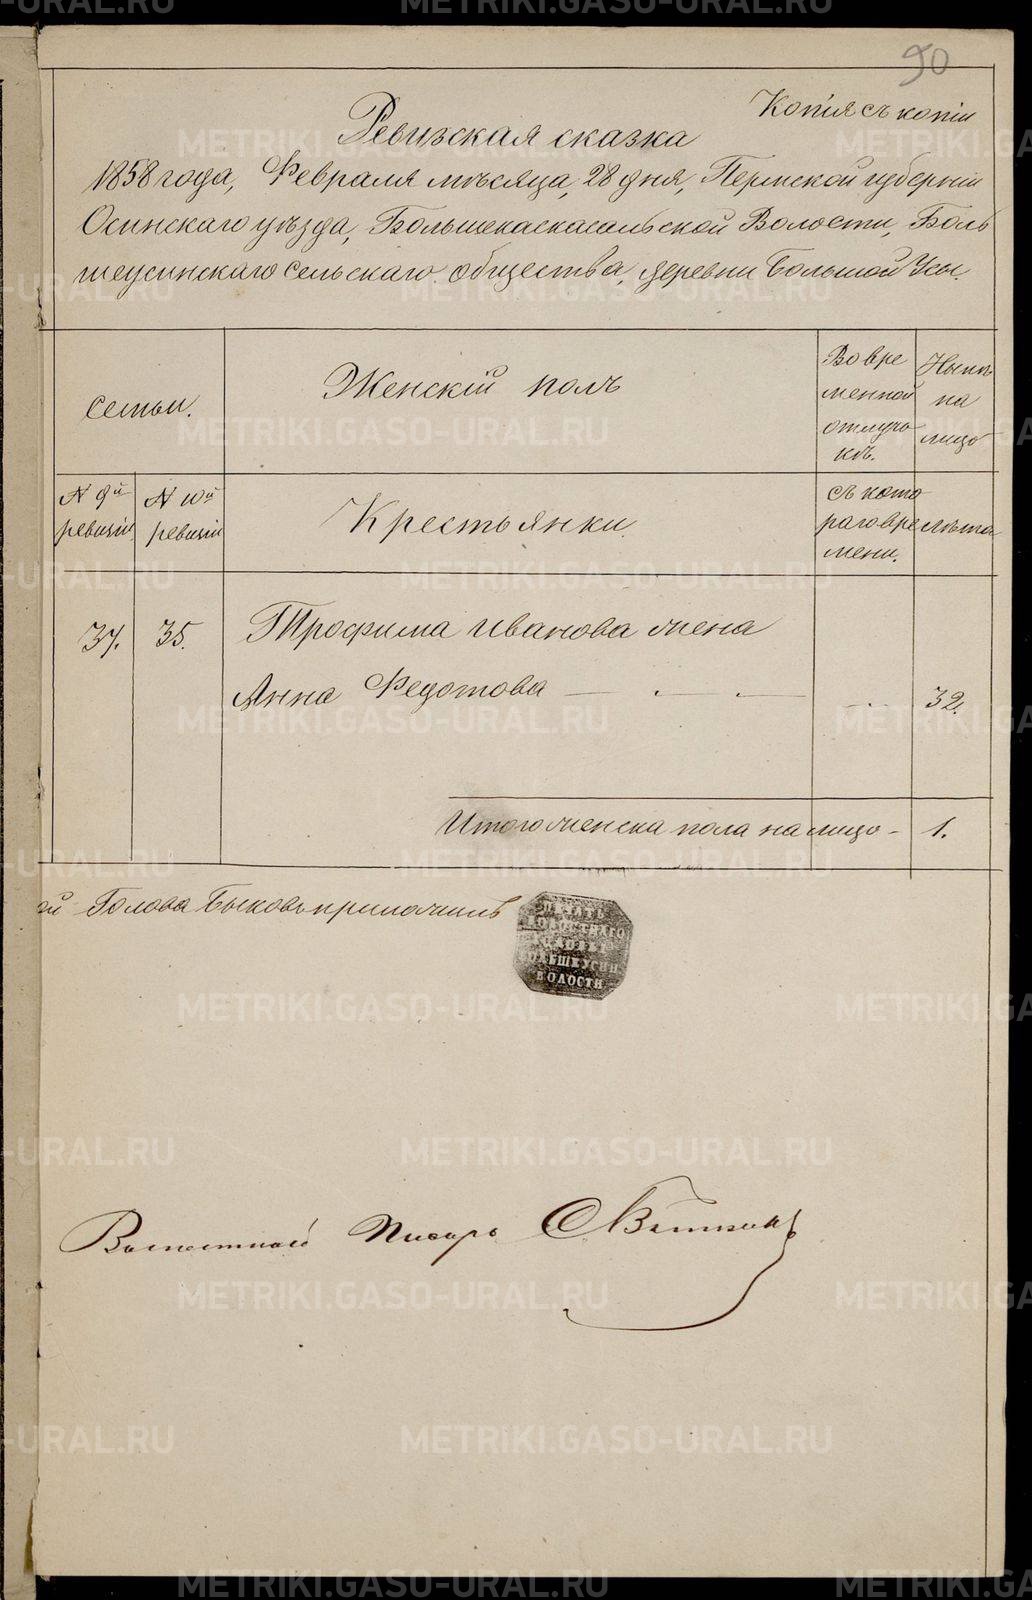 90
Копія съ копіи
Ревизская сказка
1858 года, Февраля мѣсяца, 28 дня, Пермской губерніи
Осинскаго уѣзда, Большекаскасальской Волости, Боль
шеусинскаго сельскаго общества, деревни Большой Усы.
семьи.
Женскій полъ
Во вре
менной
отлучь
кѣ.
Нынѣ
на
лицо
№ 9й
ревизіи
№ 10й
ревизіи
Крестьянки.
съ кото
раго вре
мени.
лѣта
37.
35.
Трофима Иванова жена
Анна Федотова
32.
Итого женска пола на лицо -
1.
ой Голова Быковъ приложилъ
ПЕЧАТЬ
ВОЛОСТНАГО
БОЛЬШЕУСИН
ВОЛОСТИ
Волостной Писарь
METRIKI.GASO-URAL.RU